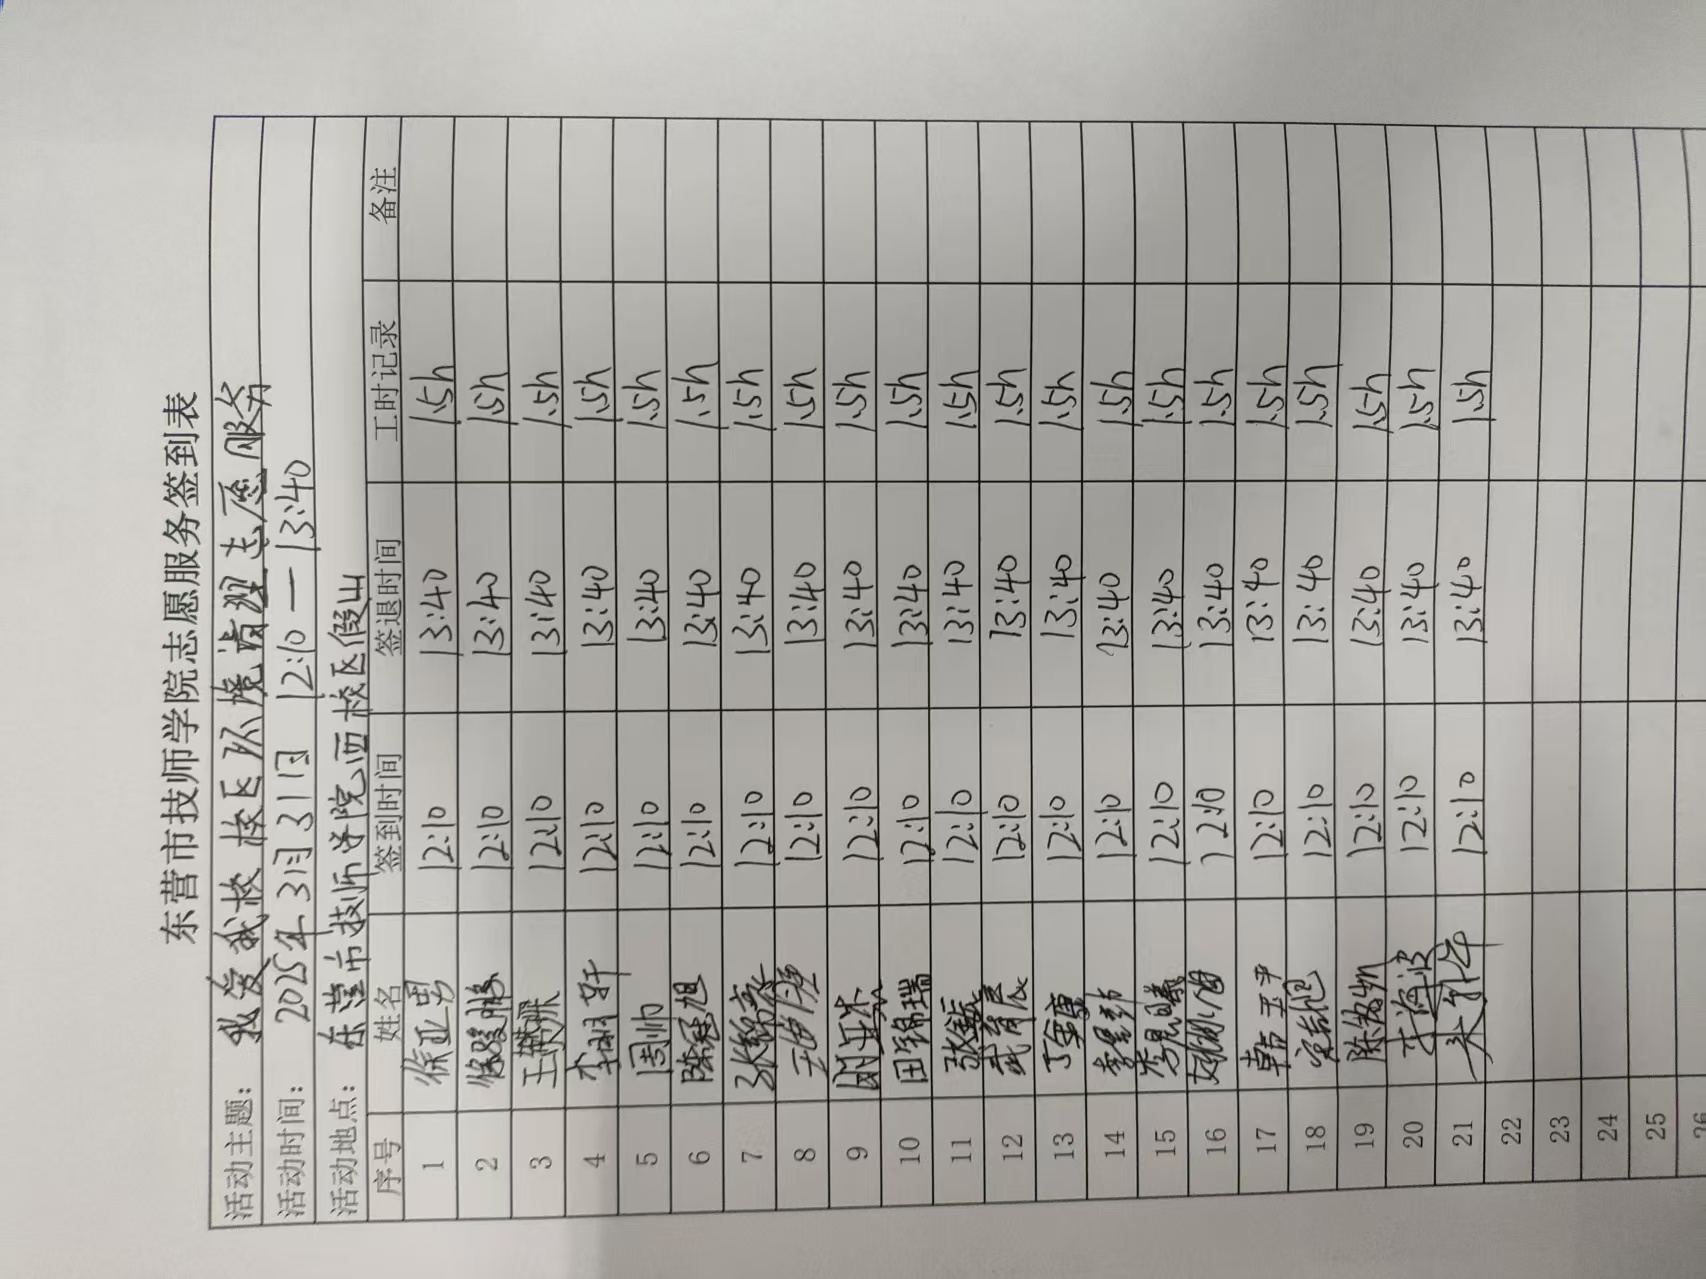 东营市技师学院志愿服务签到表
活动主题: 我爱我校 校区环境清理志愿服务
活动时间: 2025年3月31日 12:10—13:40
活动地点: 东营市技师学院西校区假山
序号 姓名 签到时间 签退时间 工时记录 备注
1 徐亚男 12:10 13:40 1.5h
2 12:10 13:40 1.5h
3 12:10 13:40 1.5h
4 李翊轩 12:10 13:40 1.5h
5 周帅 12:10 13:40 1.5h
6 陈冠旭 12:10 13:40 1.5h
7 12:10 13:40 1.5h
8 12:10 13:40 1.5h
9 12:10 13:40 1.5h
10 田锦瑞 12:10 13:40 1.5h
11 12:10 13:40 1.5h
12 12:10 13:40 1.5h
13 丁金康 12:10 13:40 1.5h
14 12:10 13:40 1.5h
15 12:10 13:40 1.5h
16 12:10 13:40 1.5h
17 12:10 13:40 1.5h
18 12:10 13:40 1.5h
19 12:10 13:40 1.5h
20 12:10 13:40 1.5h
21 12:10 13:40 1.5h
22
23
24
25
26